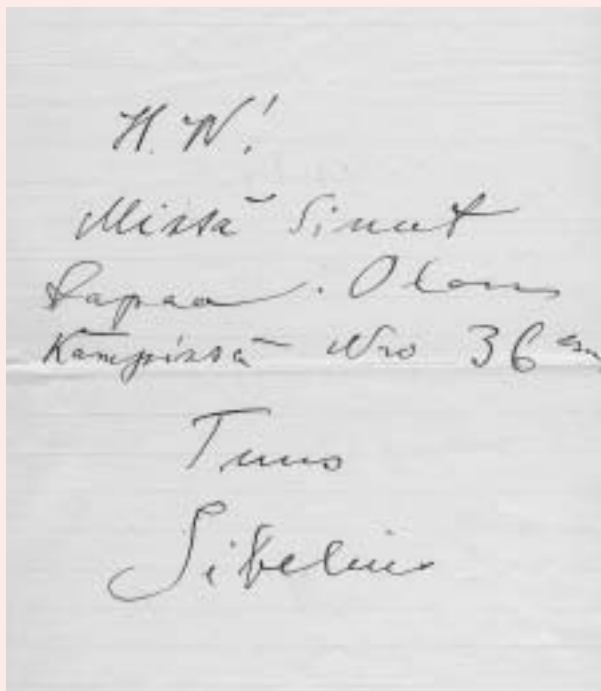 H. W!
Missä Sinut
tapaa. Olen
Kämpissä Nro 36
Tuus
Sibelius